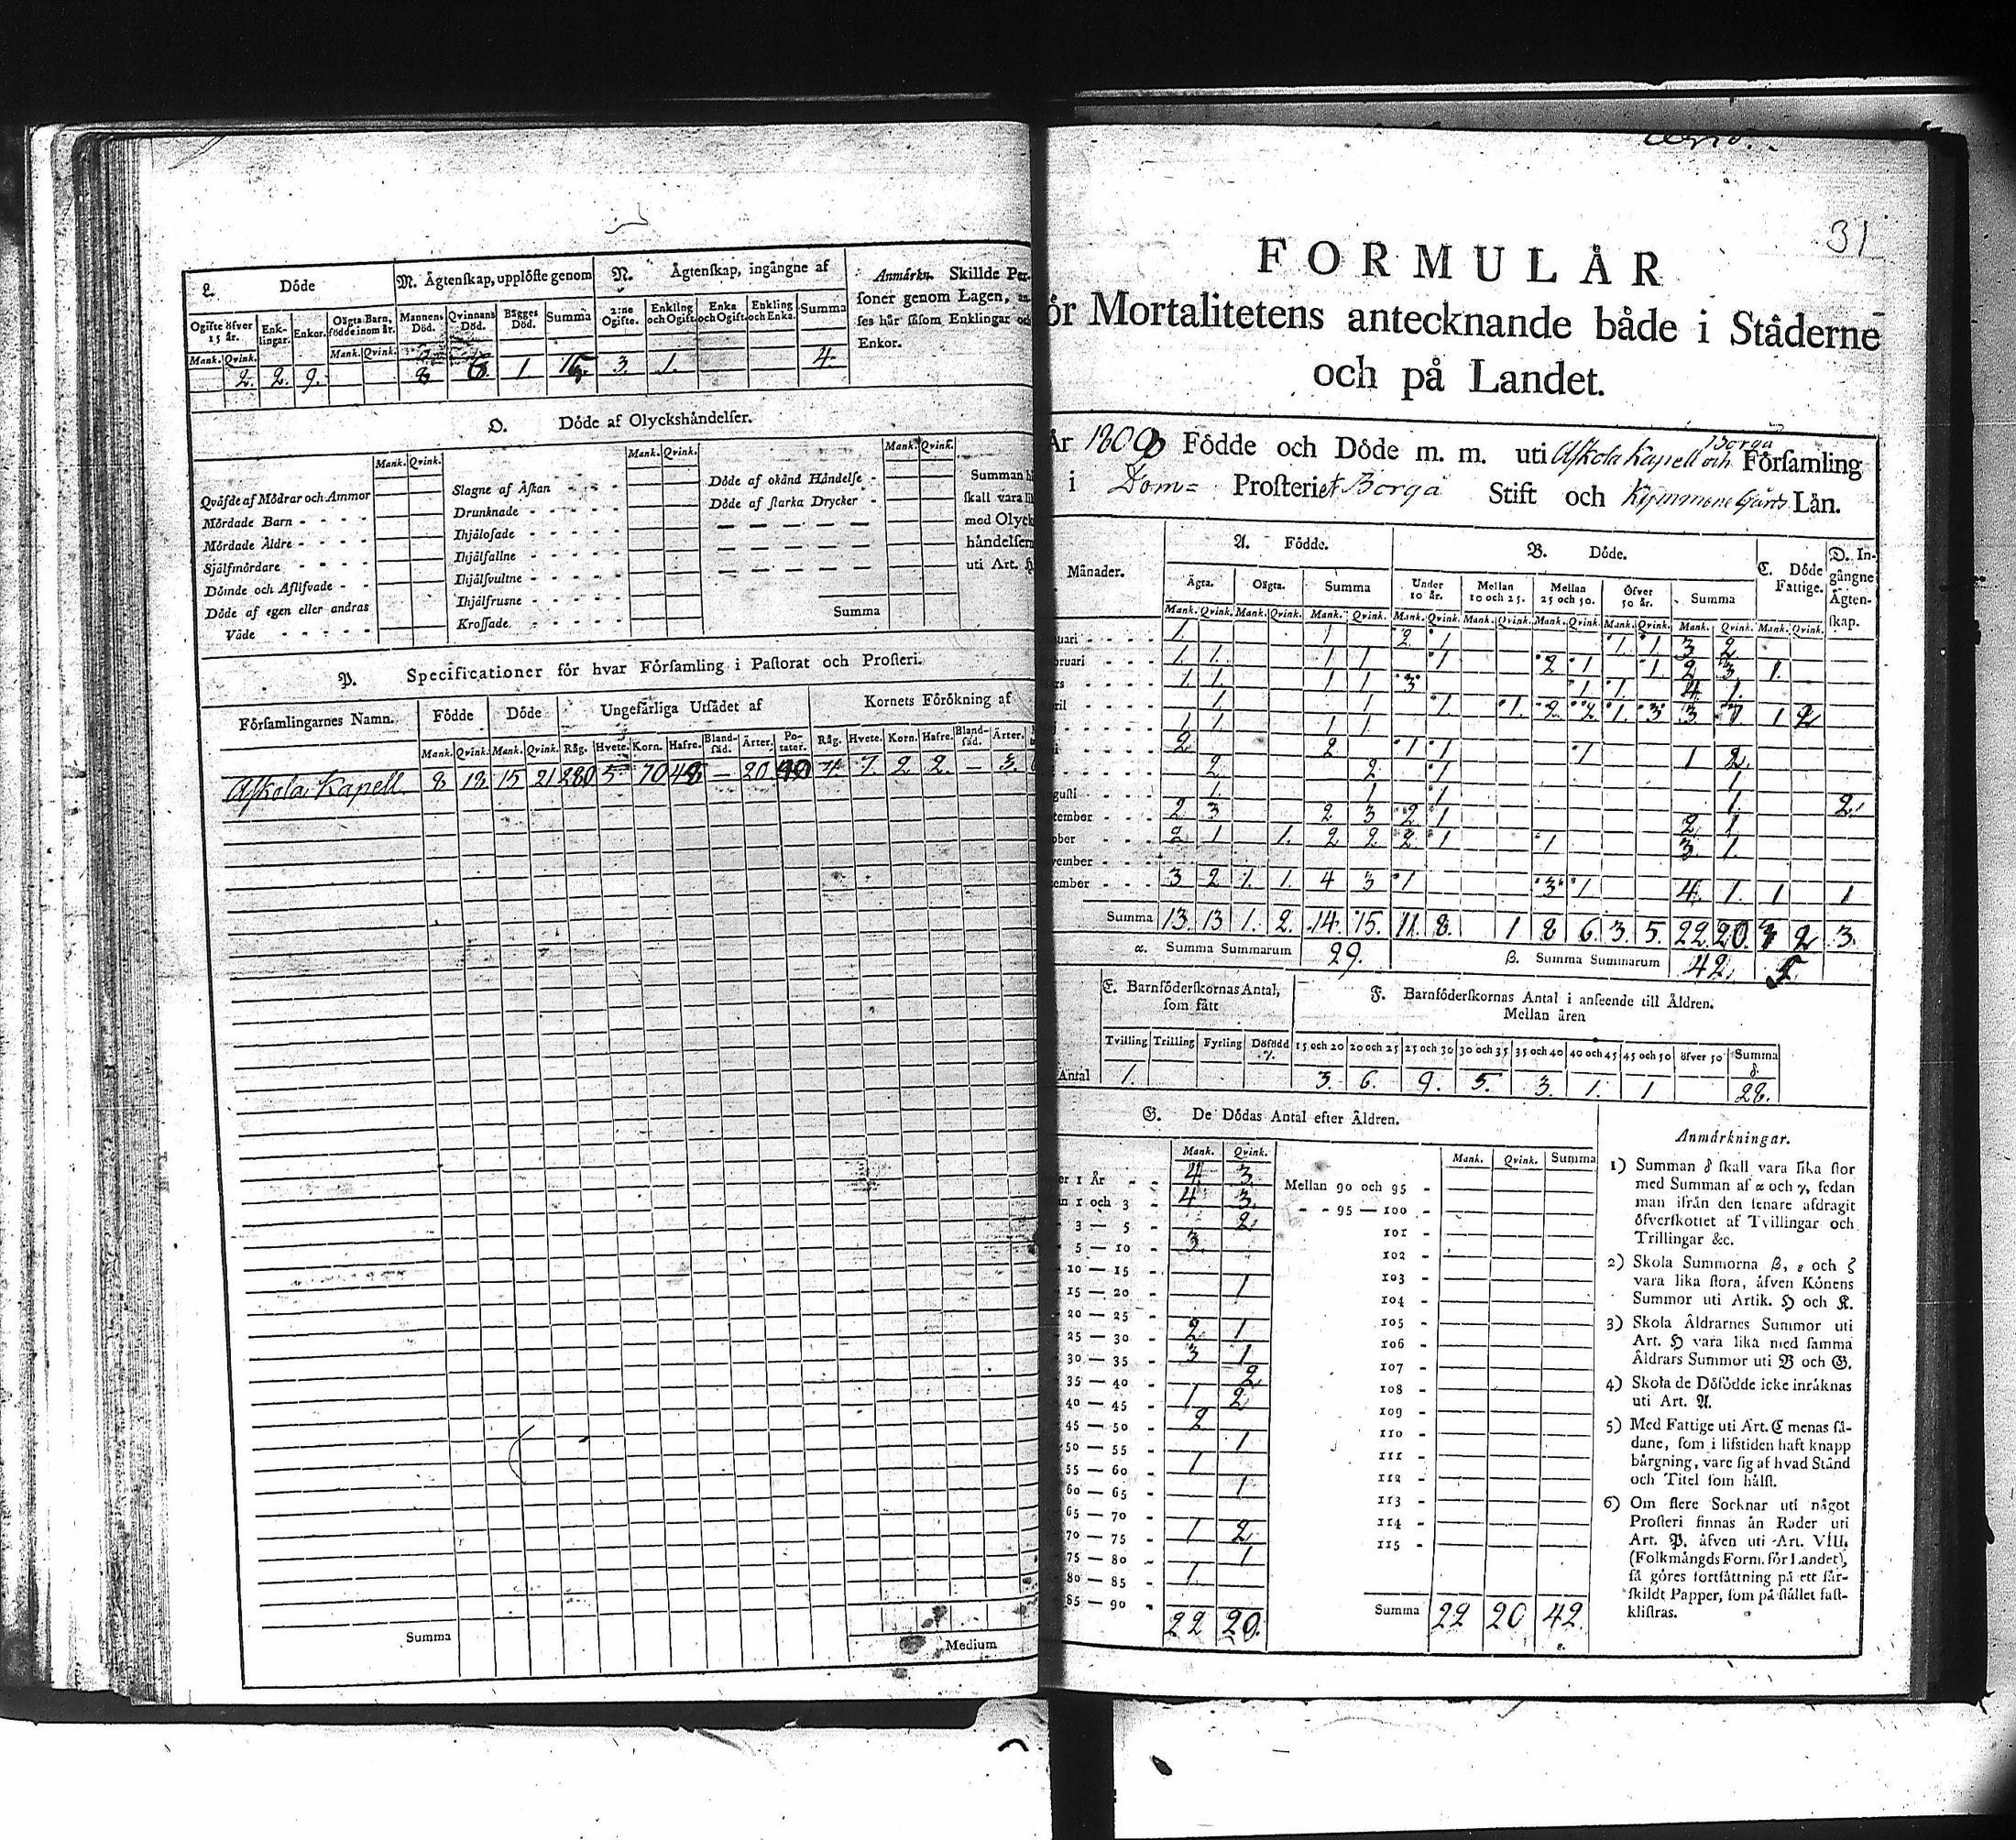 L. Döde
M. Ägtenskap, upplöste genom
N. Ägtenskap, ingångne af
Anmärkn. Skillde Per-
soner genom Lagen, an-
ses här såsom Enklingar och
Enkor.
Ogifte öfver 15 år. Enk-lingar. Enkor. Oägta Barn, födde inom år. Mannens Död. Qvinnans Död. Bägges Död. Summa 2:ne Ogifte. Enkling och Ogift. Enka och Ogift. Enkling och Enka. Summa
Mank. Qvink. Mank. Qvink.
2. 2. 9. 8 1. 3. 1. 4.
O. Döde af Olyckshändelser.
Mank. Qvink. Mank. Qvink. Mank. Qvink.
Qväfde af Mödrar och Ammor Slagne af Åskan - - - Döde af okänd Händelse -
Mördade Barn - - - - Drunknade - - - - - Döde af starka Drycker -
Mördade Äldre - - - - Ihjälosade - - - - -
Självmördare - - - - Ihjälfallne - - - - -
Dömde och Aflifvade - - Ihjälsvultne - - - - -
Döde af egen eller andras Ihjälfrusne - - - - - Summa
Våde - - - - - Krossade - - - - -
Summan h
skall vara li
med Olyck
händelsern
uti Art. H
P. Specificationer för hvar Församling i Pastorat och Prosteri.
Församlingarnes Namn. Födde Döde Ungefärliga Utsädet af Kornets Förökning af
Mank. Qvink. Mank. Qvink. Råg. Hvete. Korn. Hafre. Bland-säd. Ärter. Po-tater. Råg. Hvete. Korn. Hafre. Bland-säd. Ärter.
Askola Kapell. 8 13 15 21 280 5 70 48 — 20 40 4 7. 2 2. — 3.
Summa Medium
31
FORMULÄR
ör Mortalitetens antecknande både i Städerne
och på Landet.
År 1809 Födde och Döde m. m. uti Askola Kapell och Borgå Församling
i Dom= Prosteriet Borgå Stift och Kymmene Gårds Län.
Månader. A. Födde. B. Döde. C. Döde Fattige. D. In-gångne Ägten-skap.
Ägta. Oägta. Summa Under 10 år. Mellan 10 och 25. Mellan 25 och 50. Öfver 50 år. Summa
Mank. Qvink. Mank. Qvink. Mank. Qvink. Mank. Qvink. Mank. Qvink. Mank. Qvink. Mank. Qvink. Mank. Qvink. Mank. Qvink.
uari - - - 1. 1 2 1 1 1 3 2
bruari - - - 1. 1. 1 1 1 2 1 1 2 3 1.
rs - - - 1. 1 1 1 3 1 1. 4 1.
ril - - - 1 1 1 1. 2 2 1. 3 3 7 1 2
1 1 1 1
2 2 1 1 1 1 2
2 2 1 1
gusti 1. 1 1 1. 2.
tember - - - 2 3 2 3 2 1 2 1
ober - - - 2 1 1. 2 2 2 1 1 3 1.
vember - - -
ember - - - 3 2 1. 1. 4 3 1 3 1 4 1. 1 1
Summa 13. 13 1. 2. 14. 15. 11. 8. 1 8 6. 3. 5. 22. 20. 3 2 3.
α. Summa Summarum 29. β. Summa Summarum 42. 5
E. Barnföderskornas Antal, som fått
F. Barnföderskornas Antal i anseende till Åldren.
Mellan åren
Tvilling Trilling Fyrling Dödfödd γ. 15 och 20 20 och 25 25 och 30 30 och 35 35 och 40 40 och 45 45 och 50 öfver 50 Summa δ
Antal 1. 3. 6. 9. 5. 3. 1. 1 28.
G. De Dödas Antal efter Åldren.
Mank. Qvink. Mank. Qvink. Summa
er 1 År - - 4. 3. Mellan 90 och 95 -
n 1 och 3 - 4. 3. - - 95 — 100 -
3 — 5 - 2. 101 -
5 — 10 - 3. 102 -
10 — 15 - 103 -
15 — 20 - 1 104 -
20 — 25 - 105 -
25 — 30 - 2 1 106 -
30 — 35 - 3 1 107 -
35 — 40 - 2 108 -
40 — 45 - 1 2 109 -
45 — 50 - 2 110 -
50 — 55 - 1 111 -
55 — 60 - 1 112 -
60 — 65 - 1 113 -
65 — 70 - 114 -
70 — 75 - 1 2 115 -
75 — 80 - 1
80 — 85 - 1.
85 — 90 -
22 20. Summa 22 20 42.
ε.
Anmärkningar.
1) Summan δ skall vara lika stor
med Summan af α och γ, sedan
man ifrån den senare afdragit
öfverskottet af Tvillingar och
Trillingar &c.
2) Skola Summorna β, ε och ζ
vara lika stora, äfven Könens
Summor uti Artik. H och K.
3) Skola Åldrarnes Summor uti
Art. H vara lika med samma
Åldrars Summor uti B och G.
4) Skola de Dödfödde icke inräknas
uti Art. A.
5) Med Fattige uti Art. C menas så-
dane, som i lifstiden haft knapp
bärgning, vare sig af hvad Stånd
och Titel som hälst.
6) Om flere Socknar uti något
Prosteri finnas än Rader uti
Art. P. äfven uti Art. VIII.
(Folkmängds Form. för Landet),
så göres fortsättning på ett sär-
skildt Papper, som på stället fast-
klistras.